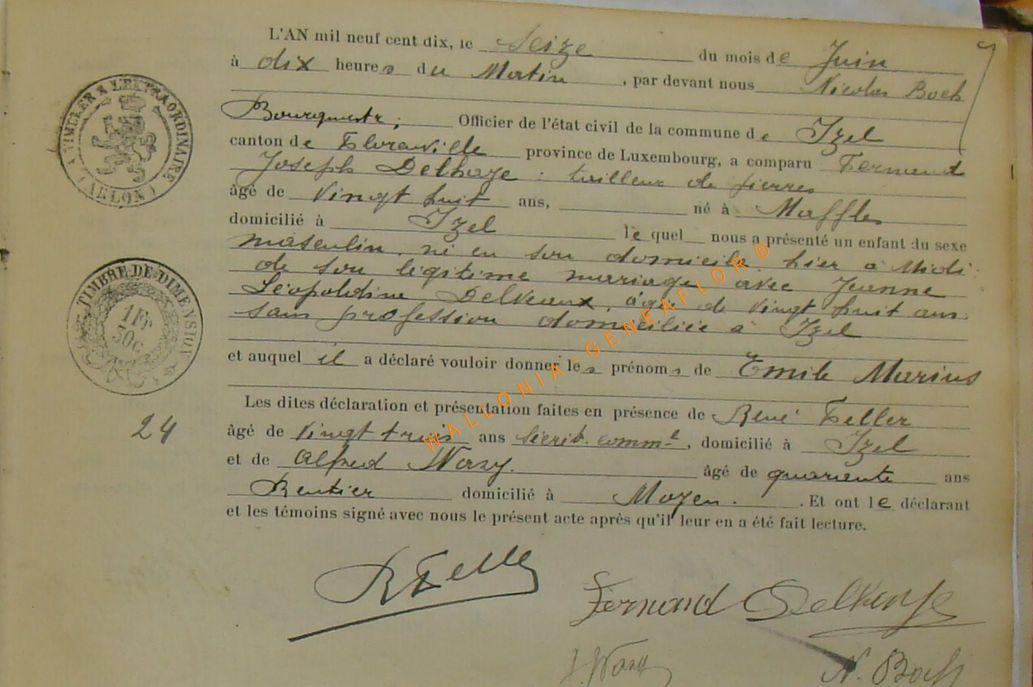 L'AN mil neuf cent dix, le Seize du mois de Juin
à dix heures du Matin, par devant nous Nicolas Boch
Bourgmestre, Officier de l'état civil de la commune de Izel
canton de Florenville province de Luxembourg, a comparu Fernand
Joseph Delhaye, tailleur de pierres
âgé de Vingt huit ans, né à Maffles
domicilié à Izel lequel nous a présenté un enfant du sexe
masculin, né en son domicile, hier à Midi
de son légitime mariage avec Jeanne
Léopoldine Delveaux, âgée de vingt huit ans
sans profession domiciliée à Izel
et auquel il a déclaré vouloir donner les prénoms de Emile Marius
Les dites déclaration et présentation faites en présence de René Feller
24
âgé de Vingt trois ans Secrét. comm.l, domicilié à Izel
et de Alfred âgé de quarante ans
Rentier domicilié à Moyen. Et ont le déclarant
et les témoins signé avec nous le présent acte après qu'il leur en a été fait lecture.
A TIMBRER A L'EXTRAORDINAIRE
(ARLON)
TIMBRE DE DIMENSION
1Fr
50c
WALLONIA-GENEAFLORD
R Feller
Fernand Delhaye
N. Boch